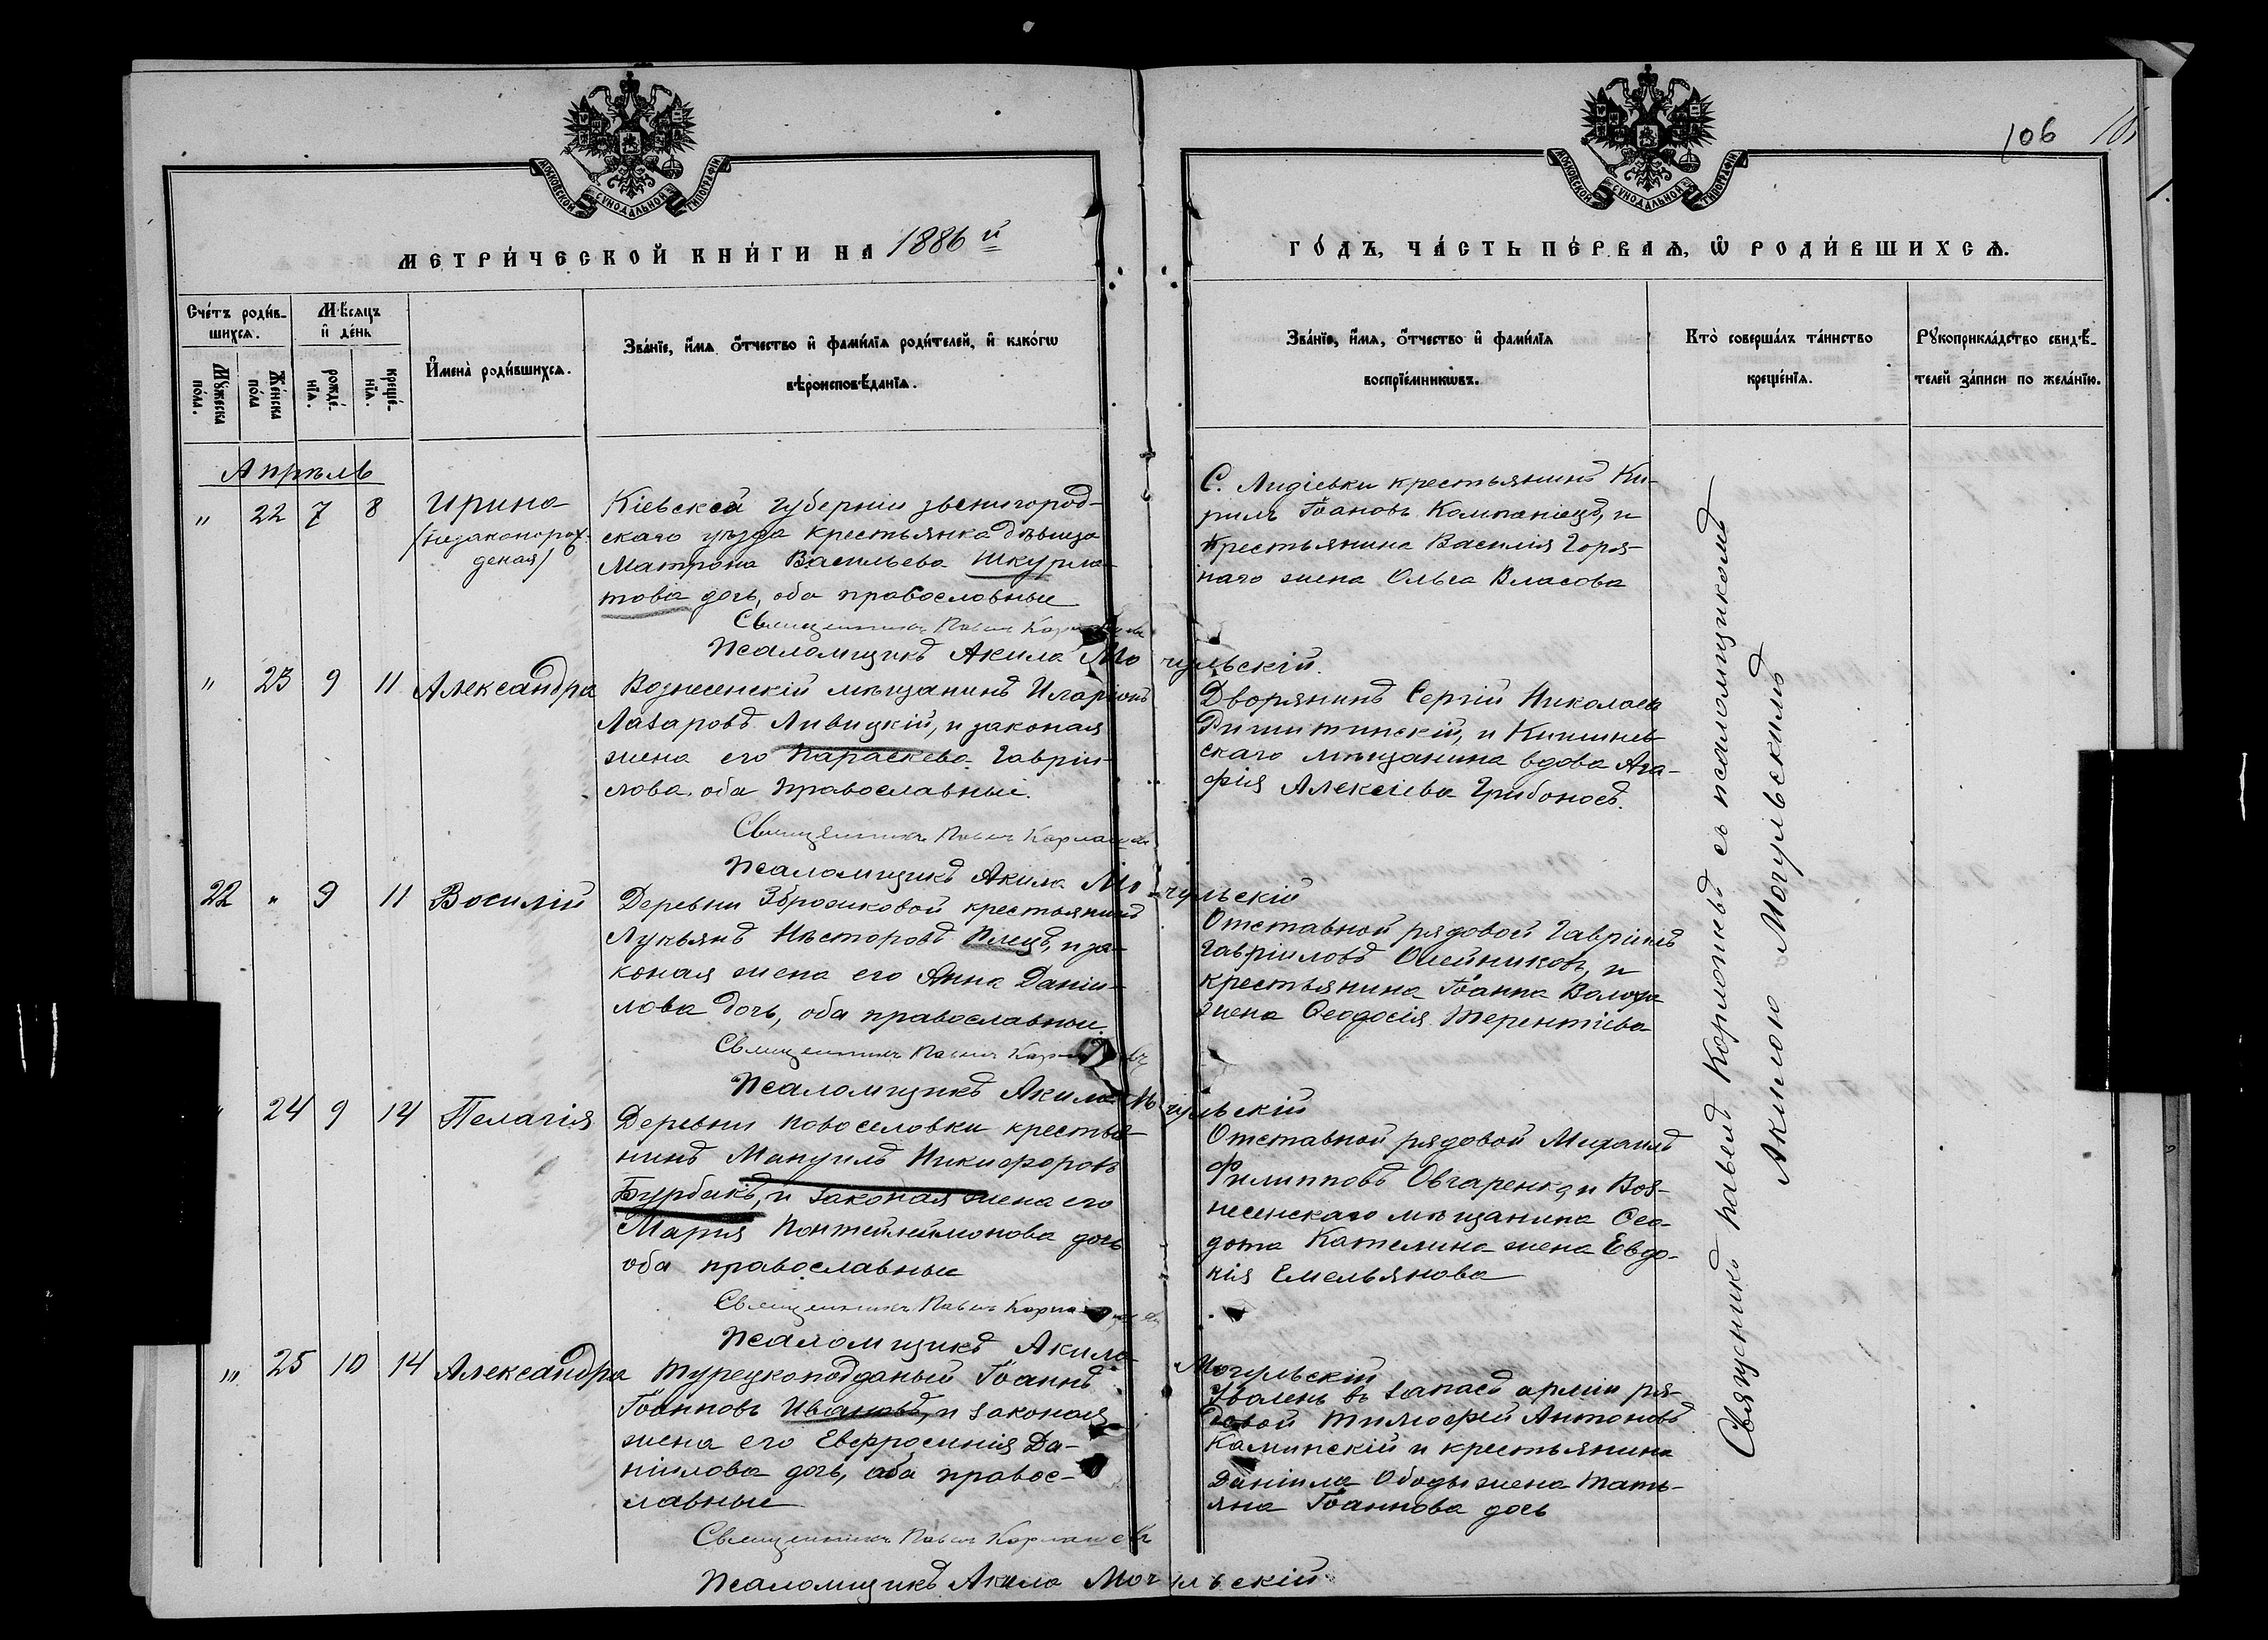 106
МОСКОВСКОЙ СУНОДАЛЬНОЙ ТИПОГРАФІИ
МОСКОВСКОЙ СУНОДАЛЬНОЙ ТИПОГРАФІИ
МЕТРИ́ЧЕСКОЙ КНИ́ГИ НА 1886 й
ГО́ДЪ, ЧА́СТЬ ПЕ́РВАѦ, Ѡ РОДИ́ВШИХСѦ.
Сче́тъ роди́в-
шихсѧ.
Мꙋ́жеска по́ла.
Же́нска по́ла
Мѣ́сѧцъ
и҆ де́нь
рожде́-
нїѧ.
креще́-
нїѧ.
И҆мена̀ роди́вшихсѧ.
Зва́нїе, и҆́мѧ ѻ҆́тчество и҆ фами́лїѧ роди́телей, и҆ како́гѡ
вѣроисповѣ́данїѧ.
Зва́нїе, и҆́мѧ, ѻ҆́тчество и҆ фами́лїѧ
воспрїе́мникѡвъ.
Кто̀ соверша́лъ та́инство
креще́нїѧ.
Рꙋкоприкла́дство свидѣ́-
телей за́писи по жела́нїю.
Апрѣль
" 22 7 8 Ирина
(незаконорож-
деная)
Кіевской губерніи звенигород-
скаго уѣзда крестьянка дѣвица
Матрона Васильева Шкурла-
това дочь, оба православные
Священникъ Павел
Псаломщикъ Акила Мочульскій.
С. Лидіевки крестьянинъ Ки-
рилъ Іоановъ Компаніецъ, и
крестьянина Василія Горя-
наго жена Ольга Власова
" 23 9 11 Александра
Вознесенскій мѣщанинъ Иларіонъ
Лазаровъ Ливицкій, и законая
жена его Параскева Гавріи-
лова, оба православные.
Священникъ Павел
Псаломщикъ Акила Мочульскій
Дворянинъ Сергій Николаев
и Кишинев-
скаго мѣщанина вдова Ага-
фія Алексіева Грибонос.
22 " 9 11 Василій
Деревни Зброжковой крестьянинъ
Лукьянъ Несторовъ Плецъ, и за-
коная жена его Анна Даніи-
лова дочь, оба православные.
Священникъ Павел
Псаломщикъ Акила Мочульскій
Отставной рядовой Гавріилъ
Гавріиловъ Олейников, и
крестьянина Іоанна Волоха
жена Ѳеодосія Терентіева
" 24 9 14 Пелагія
Деревни Новоселовки крестья-
нинъ Мануилъ Никифоровъ
Бурбакъ, и законая жена его
Марія Пантейлиймонова дочь
оба православные
Священникъ Павел
Псаломщикъ Акила Мочульскій
Отставной рядовой Михаилъ
Филипповъ Овчаренко, и Воз-
несенскаго мѣщанина Ѳео-
дота Кателина жена Евдо-
кія Емельянова
" 25 10 14 Александра
Турецкоподданый Іоаннъ
Іоанновъ Ивановъ, и законая
жена его Евфросинія Да-
ніилова дочь, оба правос-
лавные
Священникъ Павел
Псаломщикъ Акила Мочульскій
Уволенъ въ запасъ арміи ря-
довой Тимофей Антоновъ
Каминскій и крестьянина
Даніила Ободы жена Тать-
яна Іоаннова дочь
Священникъ Павелъ съ псаломщикомъ
Акилою Мочульскимъ